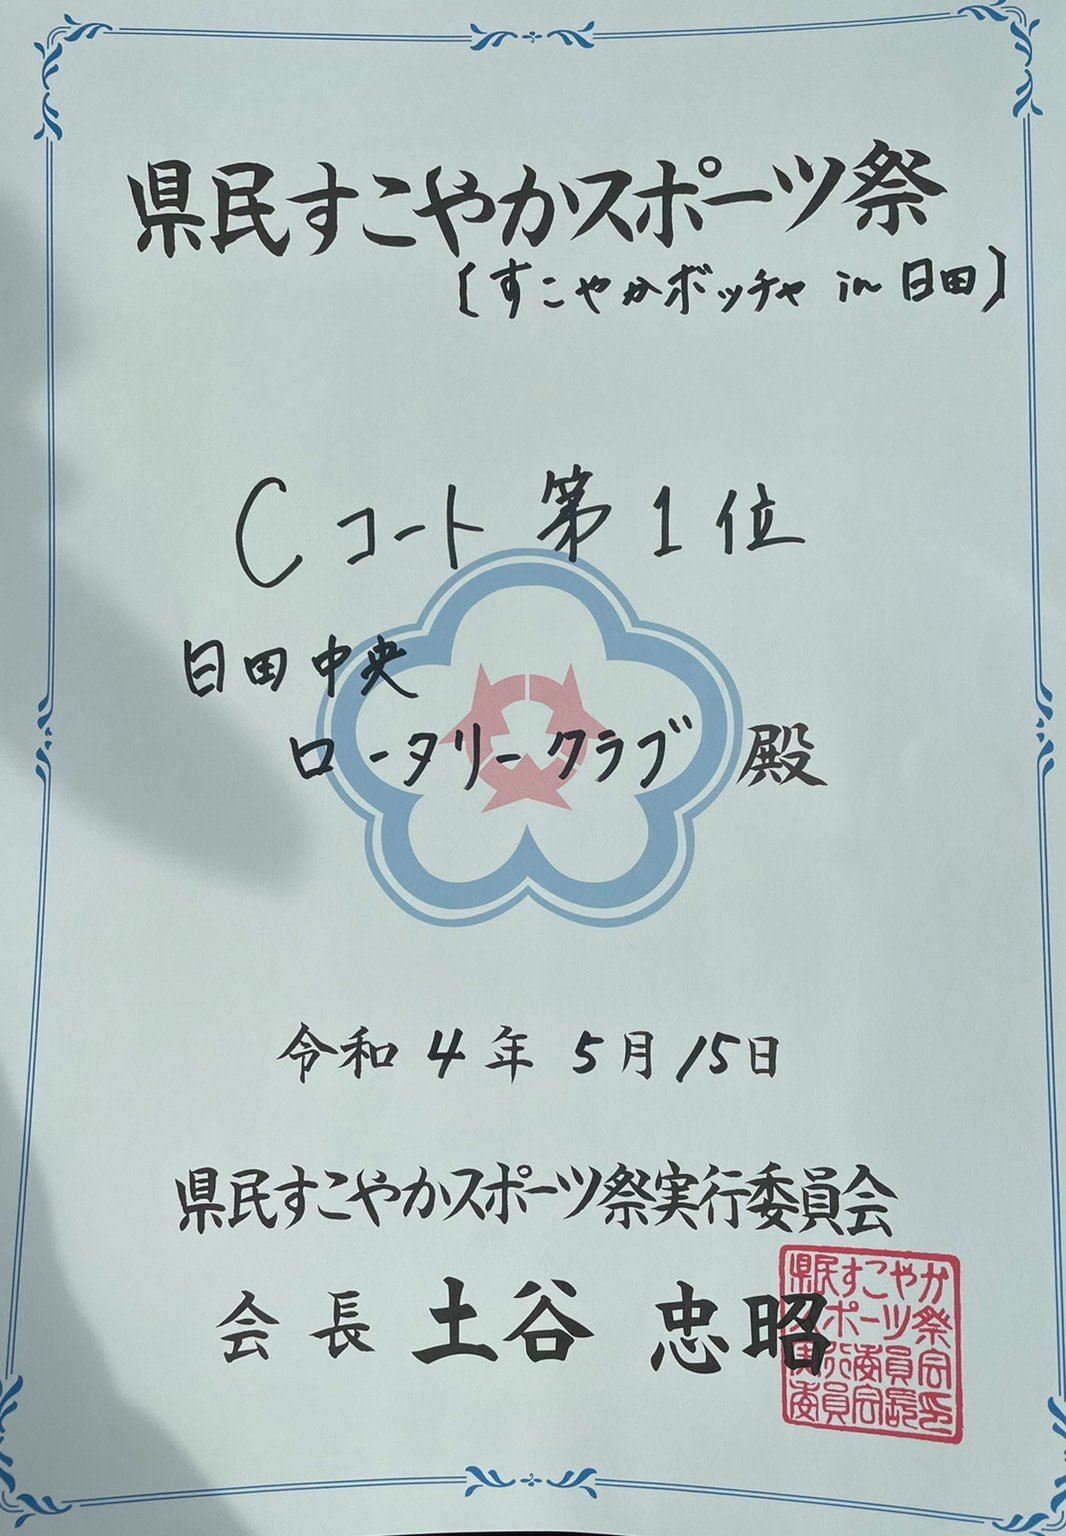 県民すこやかスポーツ祭
〔すこやかボッチャ in 日田〕
Cコート 第1位
日田中央
ロータリークラブ 殿
令和4年5月15日
県民すこやかスポーツ祭実行委員会
会長 土谷 忠昭
県民すこやか
スポーツ祭
実行委員会
委員会長印